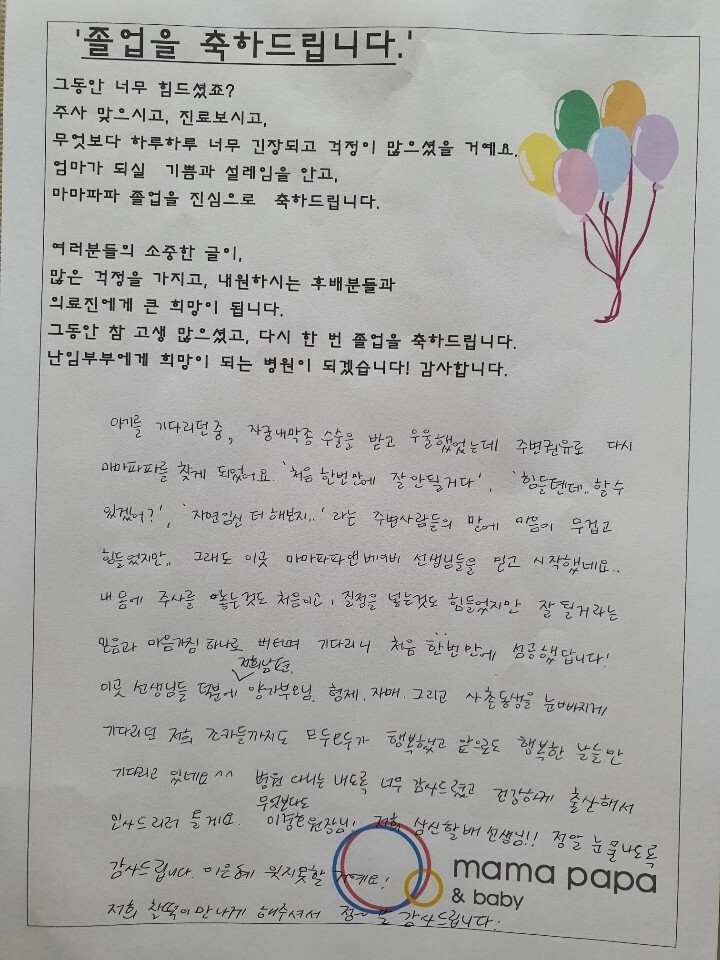 '졸업을 축하드립니다.'
그동안 너무 힘드셨죠?
주사 맞으시고, 진료보시고,
무엇보다 하루하루 너무 긴장되고 걱정이 많으셨을 거예요.
엄마가 되실 기쁨과 설레임을 안고,
마마파파 졸업을 진심으로 축하드립니다.
여러분들의 소중한 글이,
많은 걱정을 가지고, 내원하시는 후배분들과
의료진에게 큰 희망이 됩니다.
그동안 참 고생 많으셨고, 다시 한 번 졸업을 축하드립니다.
난임부부에게 희망이 되는 병원이 되겠습니다! 감사합니다.
아기를 기다리던중, 자궁내막종 수술을 받고 우울했었는데 주변권유로 다시
마마파파를 찾게 되었어요. '처음 한번만에 잘 안될거다', '힘들텐데.. 할수
있겠어?', '자연임신 더 해보지..' 라는 주변사람들의 말에 마음이 무겁고
힘들었지만.. 그래도 이곳 마마파파앤베이비 선생님들을 믿고 시작했네요..
내 몸에 주사를 놓는것도 처음이고, 질정을 넣는것도 힘들었지만 잘 될거라는
믿음과 마음가짐 하나로 버티며 기다리니 처음 한번만에 성공했답니다!
저희남편,
이곳 선생님들 덕분에 양가부모님, 형제, 자매, 그리고 사촌동생을 눈빠지게
기다리던 저희 조카들까지도 모두모두가 행복했고 앞으로도 행복한 날들만
기다리고 있네요^^ 병원 다니는 내도록 너무 감사드렸고 건강하게 출산해서
무엇보다도
인사드리러 올게요. 원장님! 저희 삼신할배 선생님!! 정말 눈물나도록
감사드립니다. 이은혜 잊지못할 거예요!
저희 찰떡이만나게 해주셔서 감사드립니다!
mama papa
& baby